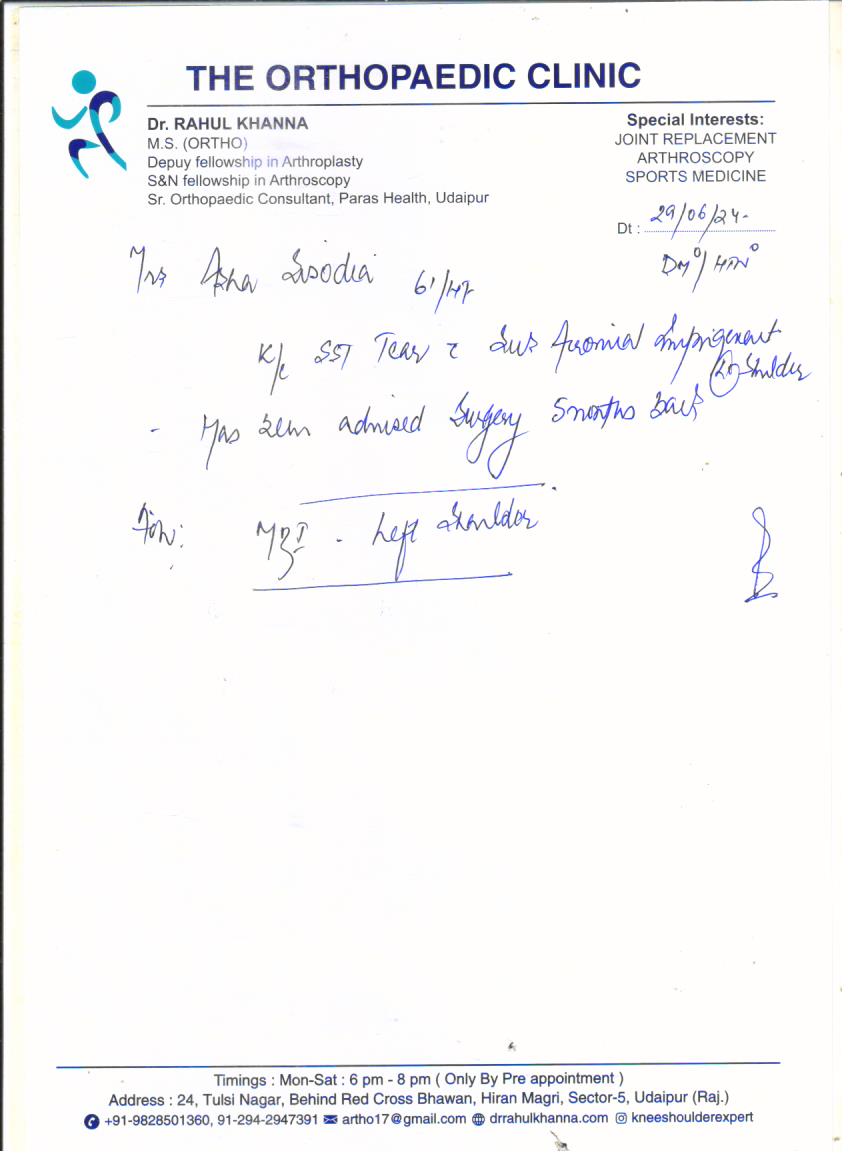 THE ORTHOPAEDIC CLINIC
Dr. RAHUL KHANNA
M.S. (ORTHO)
Depuy fellowship in Arthroplasty
S&N fellowship in Arthroscopy
Sr. Orthopaedic Consultant, Paras Health, Udaipur
Special Interests:
JOINT REPLACEMENT
ARTHROSCOPY
SPORTS MEDICINE
Dt : 29/06/24
DM⁰/HTN⁰
Mrs Asha Sisodia 61/
K/c SST Tear c Sub Acromial Impigement
Shoulder
- Has been advised Surgery 5 months back
MRI - Left Shoulder
Timings : Mon-Sat : 6 pm - 8 pm ( Only By Pre appointment )
Address : 24, Tulsi Nagar, Behind Red Cross Bhawan, Hiran Magri, Sector-5, Udaipur (Raj.)
+91-9828501360, 91-294-2947391 artho17@gmail.com drrahulkhanna.com kneeshoulderexpert